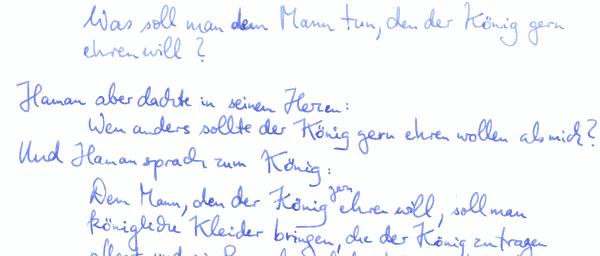 Was soll man dem Mann tun, den der König gern
ehren will?
Haman aber dachte in seinem Herzen:
Wen anders sollte der König gern ehren wollen als mich?
Und Haman sprach zum König:
Dem Mann, den der König gern ehren will, soll man
königliche Kleider bringen, die der König zu tragen
pflegt und ein